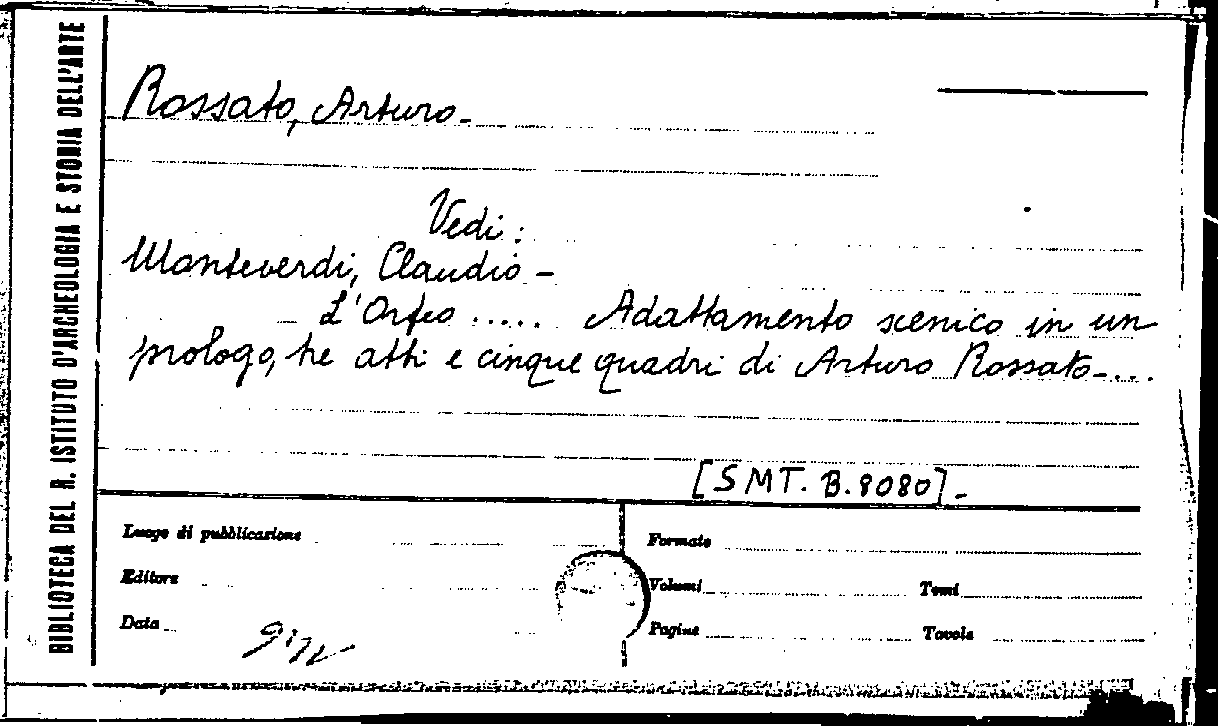 BIBLIOTECA DEL R. ISTITUTO D'ARCHEOLOGIA E STORIA DELL'ARTE
Rossato, Arturo -
Vedi :
Monteverdi, Claudio -
L'Orfeo ..... Adattamento scenico in un
prologo, tre atti e cinque quadri di Arturo Rossato - ...
[SMT. B. 8080] -
Luogo di pubblicazione
Formato
Editore
Volumi
Tomi
Data
Pagine
Tavole